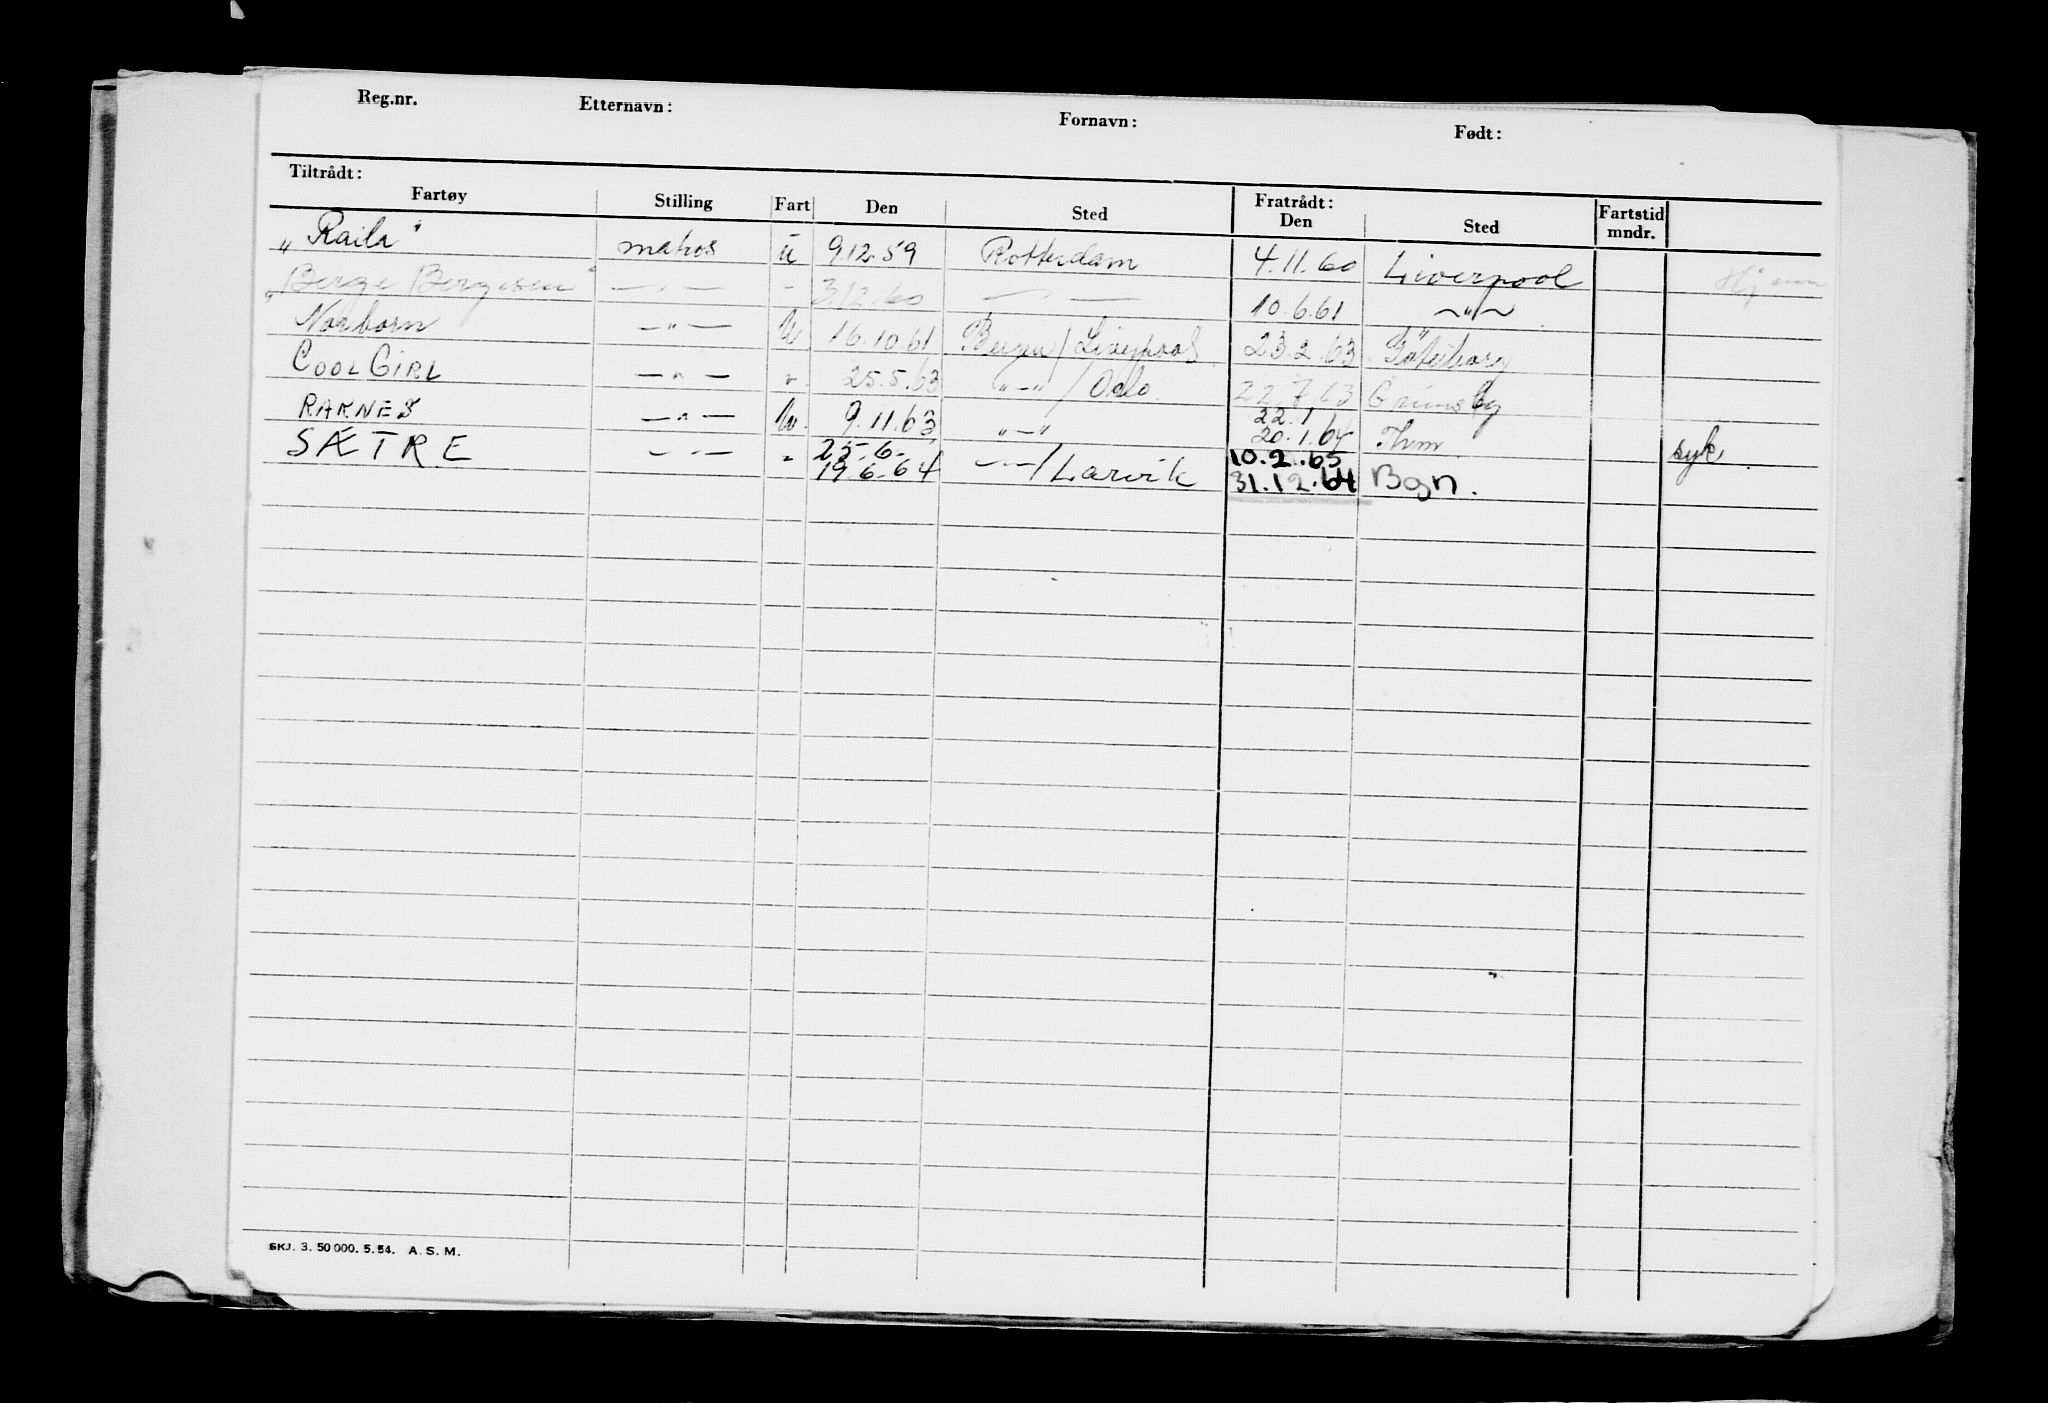 Reg.nr. Etternavn: Fornavn: Født:
Tiltrådt: Fratrådt:
Fartøy Stilling Fart Den Sted Den Sted Fartstid mndr.
„Raila" matros u 9.12.59 Rotterdam 4.11.60 Liverpool
„Berge Bergesen" —„— - 3.12.60 —„— 10.6.61 —„—
Norborn —„— U 16.10.61 Bergen/Liverpool 23.2.63 Göteborg
COOL GIRL —„— „ 25.5.63 „—„/Oslo 22.7.63 Grimsby
RAKNES —„— U. 9.11.63 „—„ 22.1 20.1.64 Thm. syk
SÆTRE —„— „ 25.6- 19.6.64 —„—/Larvik 10.2.65 31.12.64 Bgn.
SKJ. 3. 50 000. 5. 54. A. S. M.